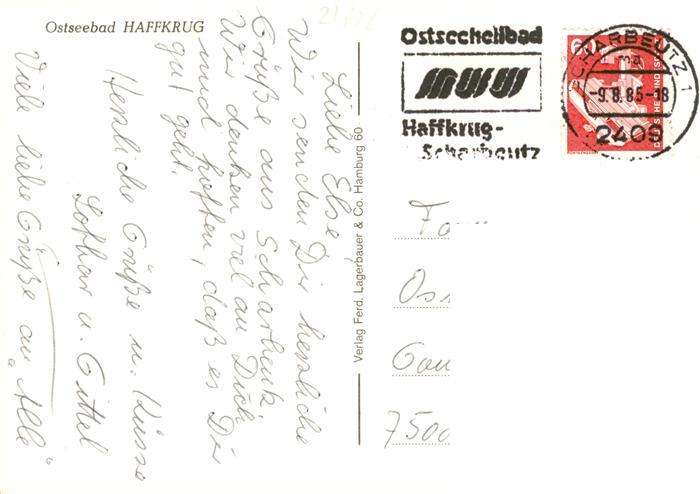 Ostseebad HAFFKRUG
Liebe Else,
Wir senden Dir herzliche
Grüße aus Scharbeutz.
Wir denken viel an Dich
und hoffen, daß es Dir
gut geht.
Herzliche Grüße u. Küsse
Lothar u. Gittel
Viele liebe Grüße an „Alle"
Verlag Ferd. Lagerbauer & Co. Hamburg 60
Ostseeheilbad
Haffkrug-
Scharbeutz
SCHARBEUTZ 1
ma
-9.8.85-18
2409
60
Fa
Oss
7500